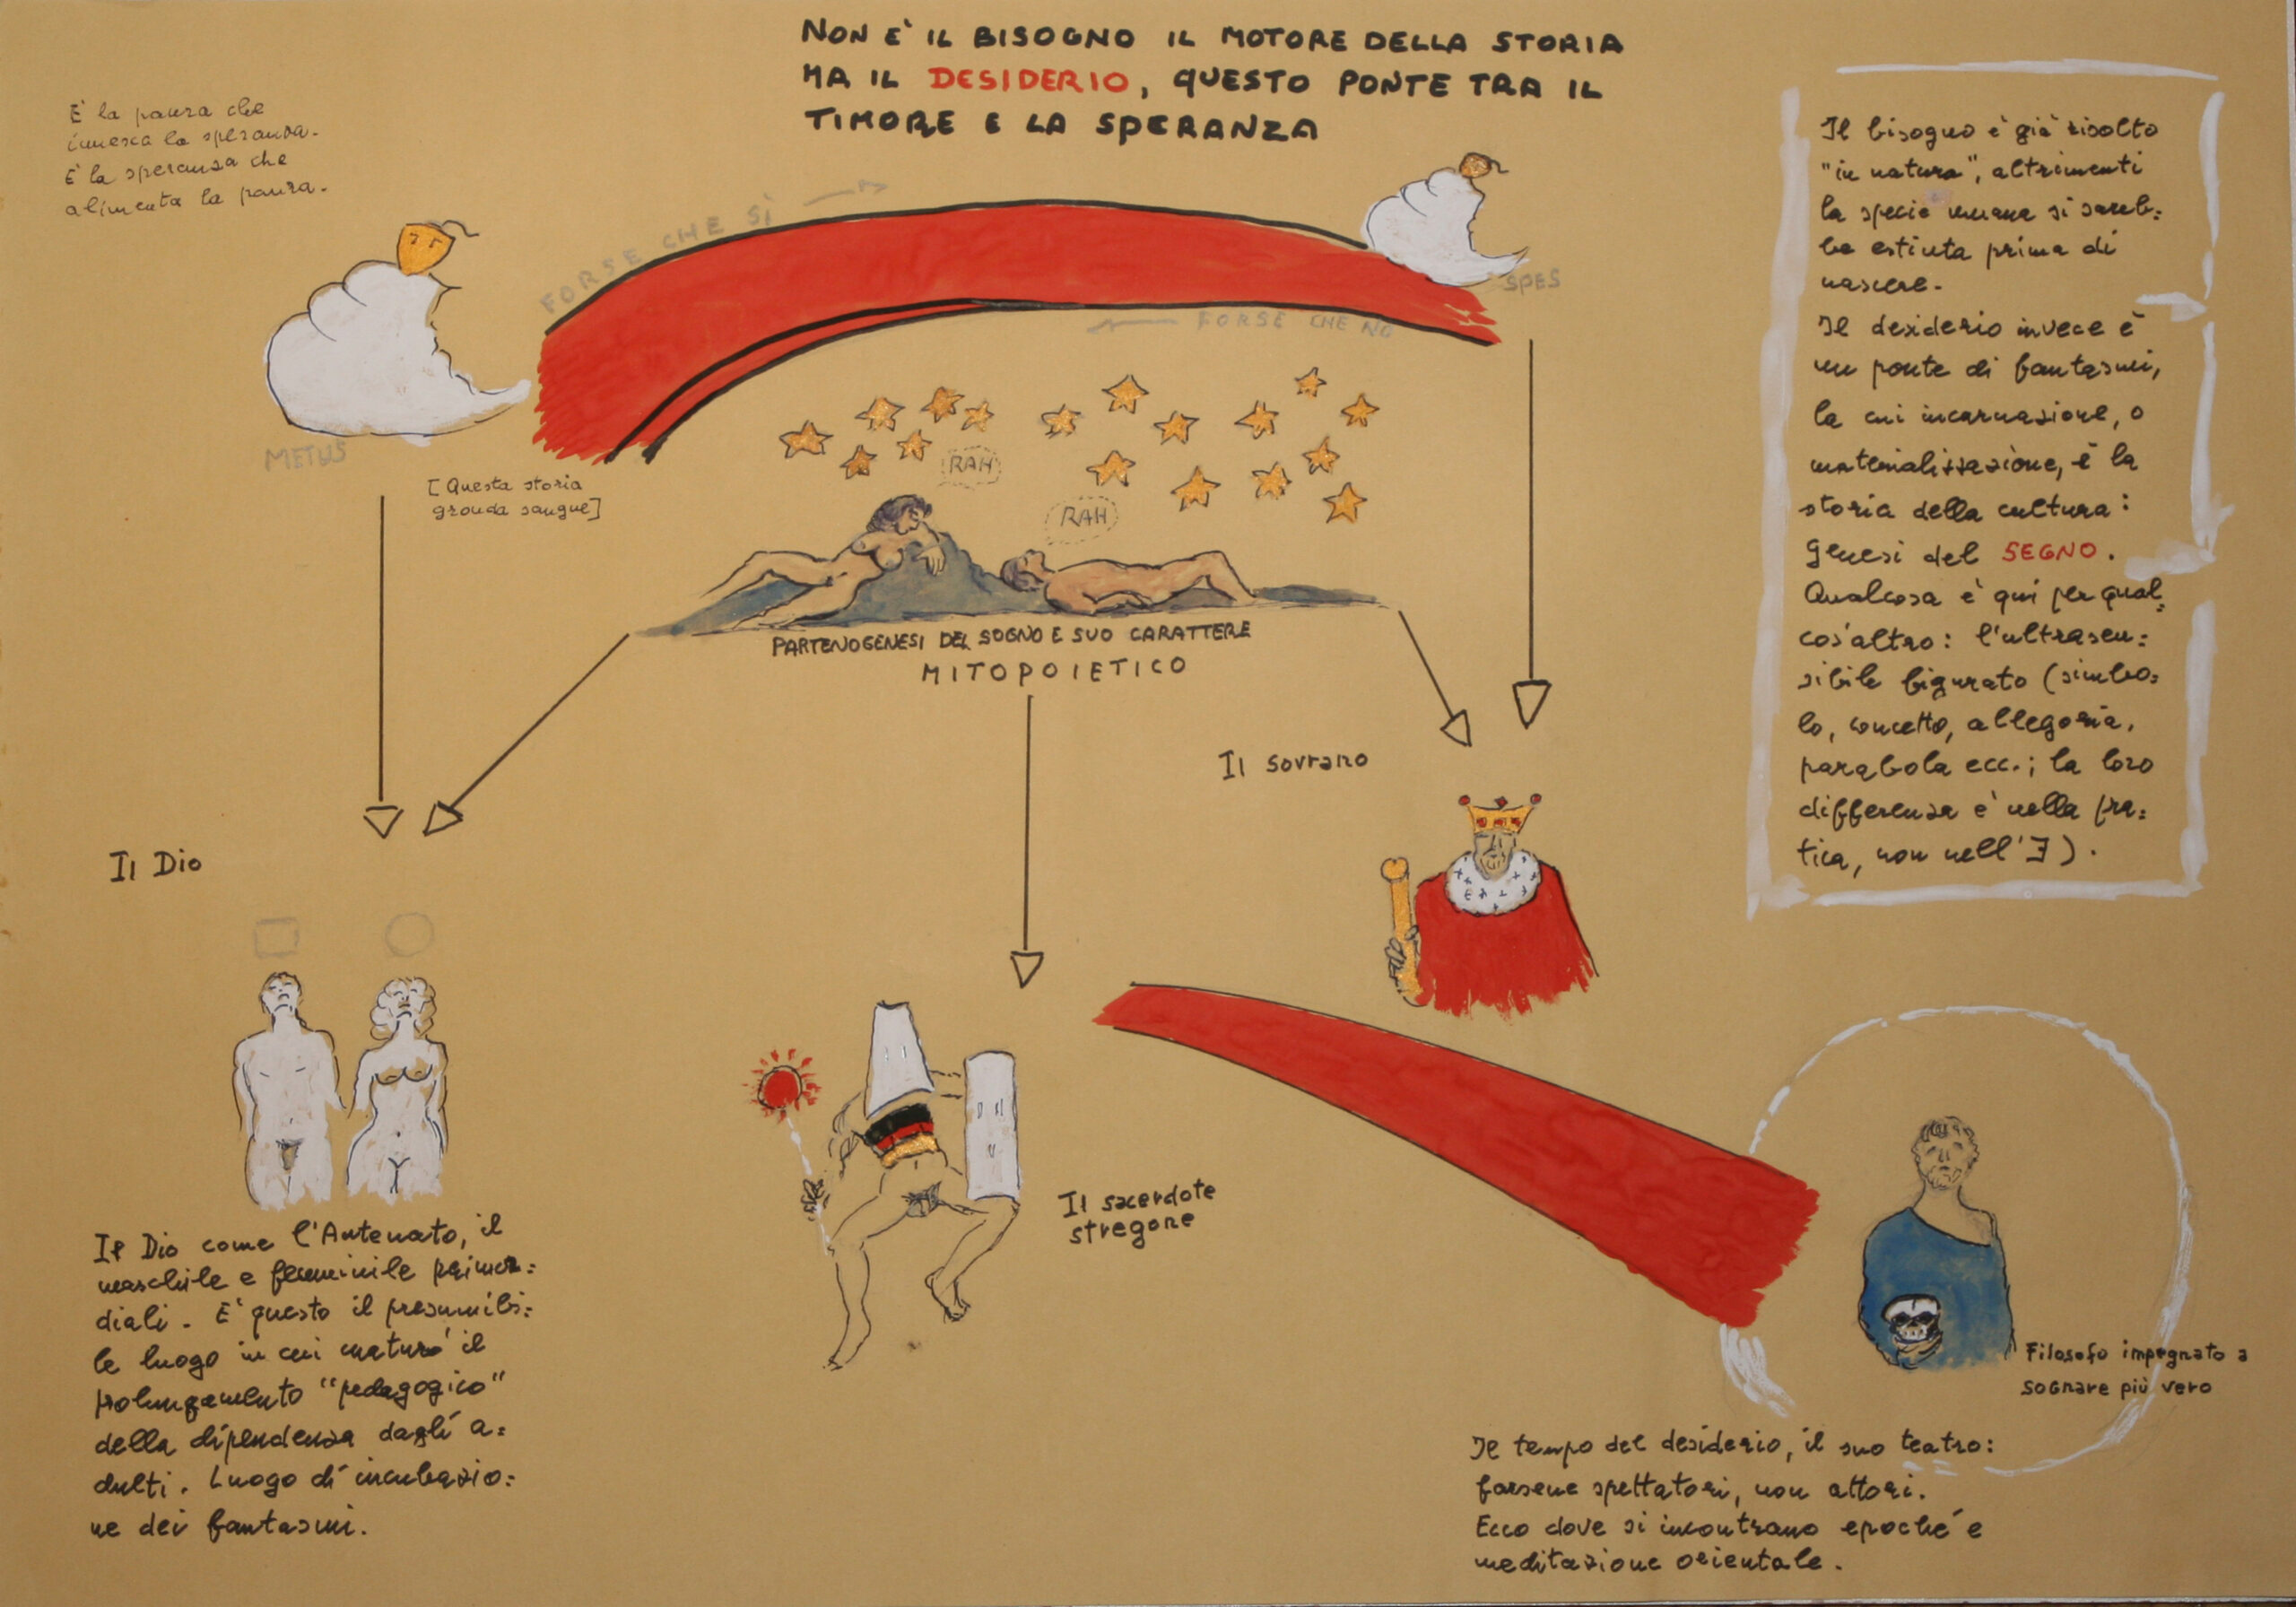 NON E' IL BISOGNO IL MOTORE DELLA STORIA
MA IL DESIDERIO, QUESTO PONTE TRA IL
TIMORE E LA SPERANZA
E' la paura che
innesca la speranza.
E' la speranza che
alimenta la paura.
FORSE CHE SÌ
SPES
FORSE CHE NO
METUS
[Questa storia
gronda sangue]
RAH
RAH
PARTENOGENESI DEL SOGNO E SUO CARATTERE
MITOPOIETICO
Il bisogno è già risolto
"in natura", altrimenti
la specie umana si sareb=
be estinta prima di
nascere.
Il desiderio invece è
un ponte di fantasmi,
la cui incarnazione, o
materializzazione, è la
storia della cultura:
genesi del SEGNO.
Qualcosa è qui per qual=
cos'altro: l'ultrasen=
sibile figurato (simbo=
lo, concetto, allegoria,
parabola ecc.; la loro
differenza è nella pra=
tica, non nell'∃).
Il sovrano
Il Dio
Il sacerdote
stregone
Il Dio come l'Antenato, il
maschile e femminile primor=
diali. E' questo il presumibi=
le luogo in cui maturò il
prolungamento "pedagogico"
della dipendenza dagli a=
dulti. Luogo di incubazio=
ne dei fantasmi.
Filosofo impegnato a
sognare più vero
Il tempo del desiderio, il suo teatro:
farsene spettatori, non attori.
Ecco dove si incontrano epoché e
meditazione orientale.